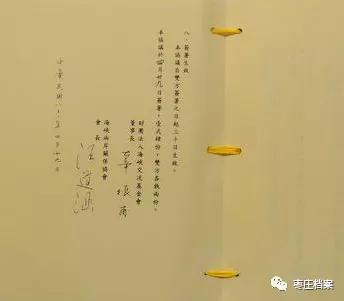 八、簽署生效
本協議自雙方簽署之日起三十日生效。
本協議於四月廿九日簽署，壹式肆份，雙方各執兩份。
財團法人海峽交流基金會
董事長 辜振甫
海峽兩岸關係協會
會長 汪道涵
中華民國八十二年四月廿九日
枣庄档案